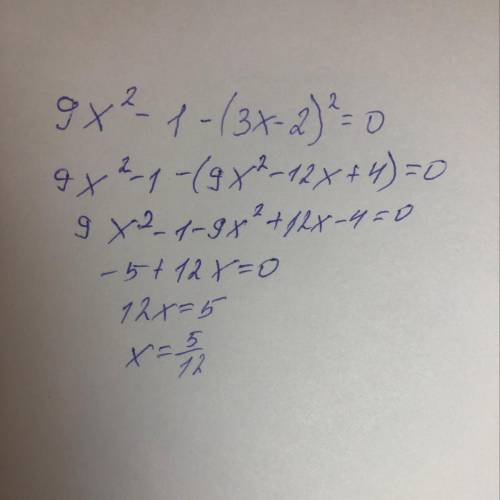 9x² - 1 - (3x - 2)² = 0
9x² - 1 - (9x² - 12x + 4) = 0
9x² - 1 - 9x² + 12x - 4 = 0
- 5 + 12x = 0
12x = 5
x = 5/12